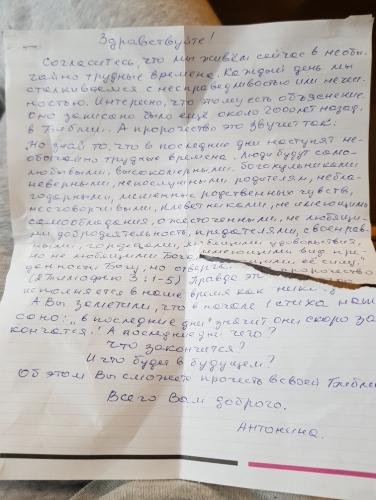 Здравствуйте!
Согласитесь, что мы живём сейчас в необы-
чайно трудные времена. Каждый день мы
сталкиваемся с несправедливостью или нечест-
ностью. Интересно, что этому есть объяснение
Оно записано было ещё около 2000 лет назад,
в Библии. А пророчество это звучит так:
"Но знай то, что в последние дни наступят не-
обычайно трудные времена. Люди будут само-
любивыми, высокомерными, богохульниками
неверными, непослушными родителям, небла-
годарными, лишенные родственных чувств,
несговорчивыми, клеветниками, не имеющими
самообладания, ожесточенными, не любящи-
ми добродетельность, предателями, своенрав-
ными, гордецами, любящими удовольствия,
но не любящими Бога, имеющими вид пре-
данности Богу, но отверга ющими её силу"
(2 Тимофею 3:1-5) Правда это пророчество
исполняется в наше время как ник
А Вы заметили, что в начале 1 стиха напи
сано: "в последние дни" значит они скоро за-
кончатся. А последние дни чего?
Что закончится?
И что будет в будущем?
Об этом Вы сможете прочесть в своей Библи
Всего Вам доброго.
Антонина.